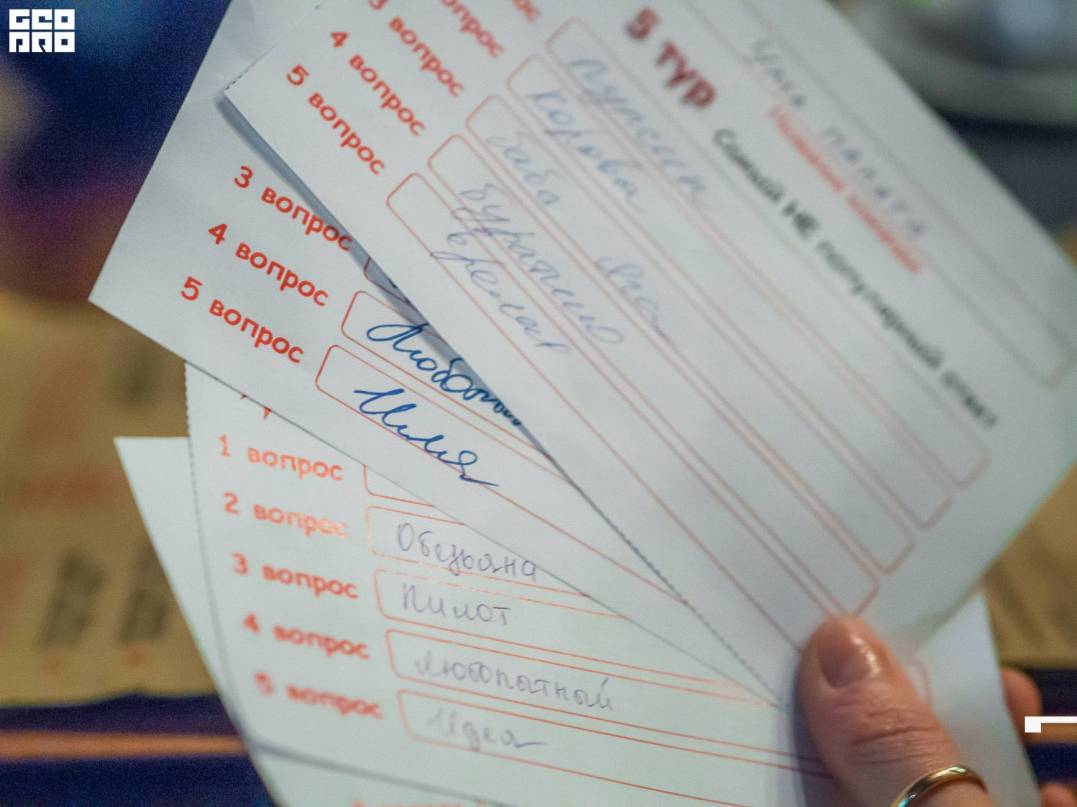 GEO
PRO
Ума палата
Название команды
5 тур
Самый НЕ популярный ответ
вопрос
вопрос
3 вопрос
4 вопрос
5 вопрос
пупсик
корова
баба яга
буратино
3 вопрос
4 вопрос
Любопытный
5 вопрос
1 вопрос
2 вопрос
Обезьяна
3 вопрос
Пилот
4 вопрос
любопытный
5 вопрос
Идея